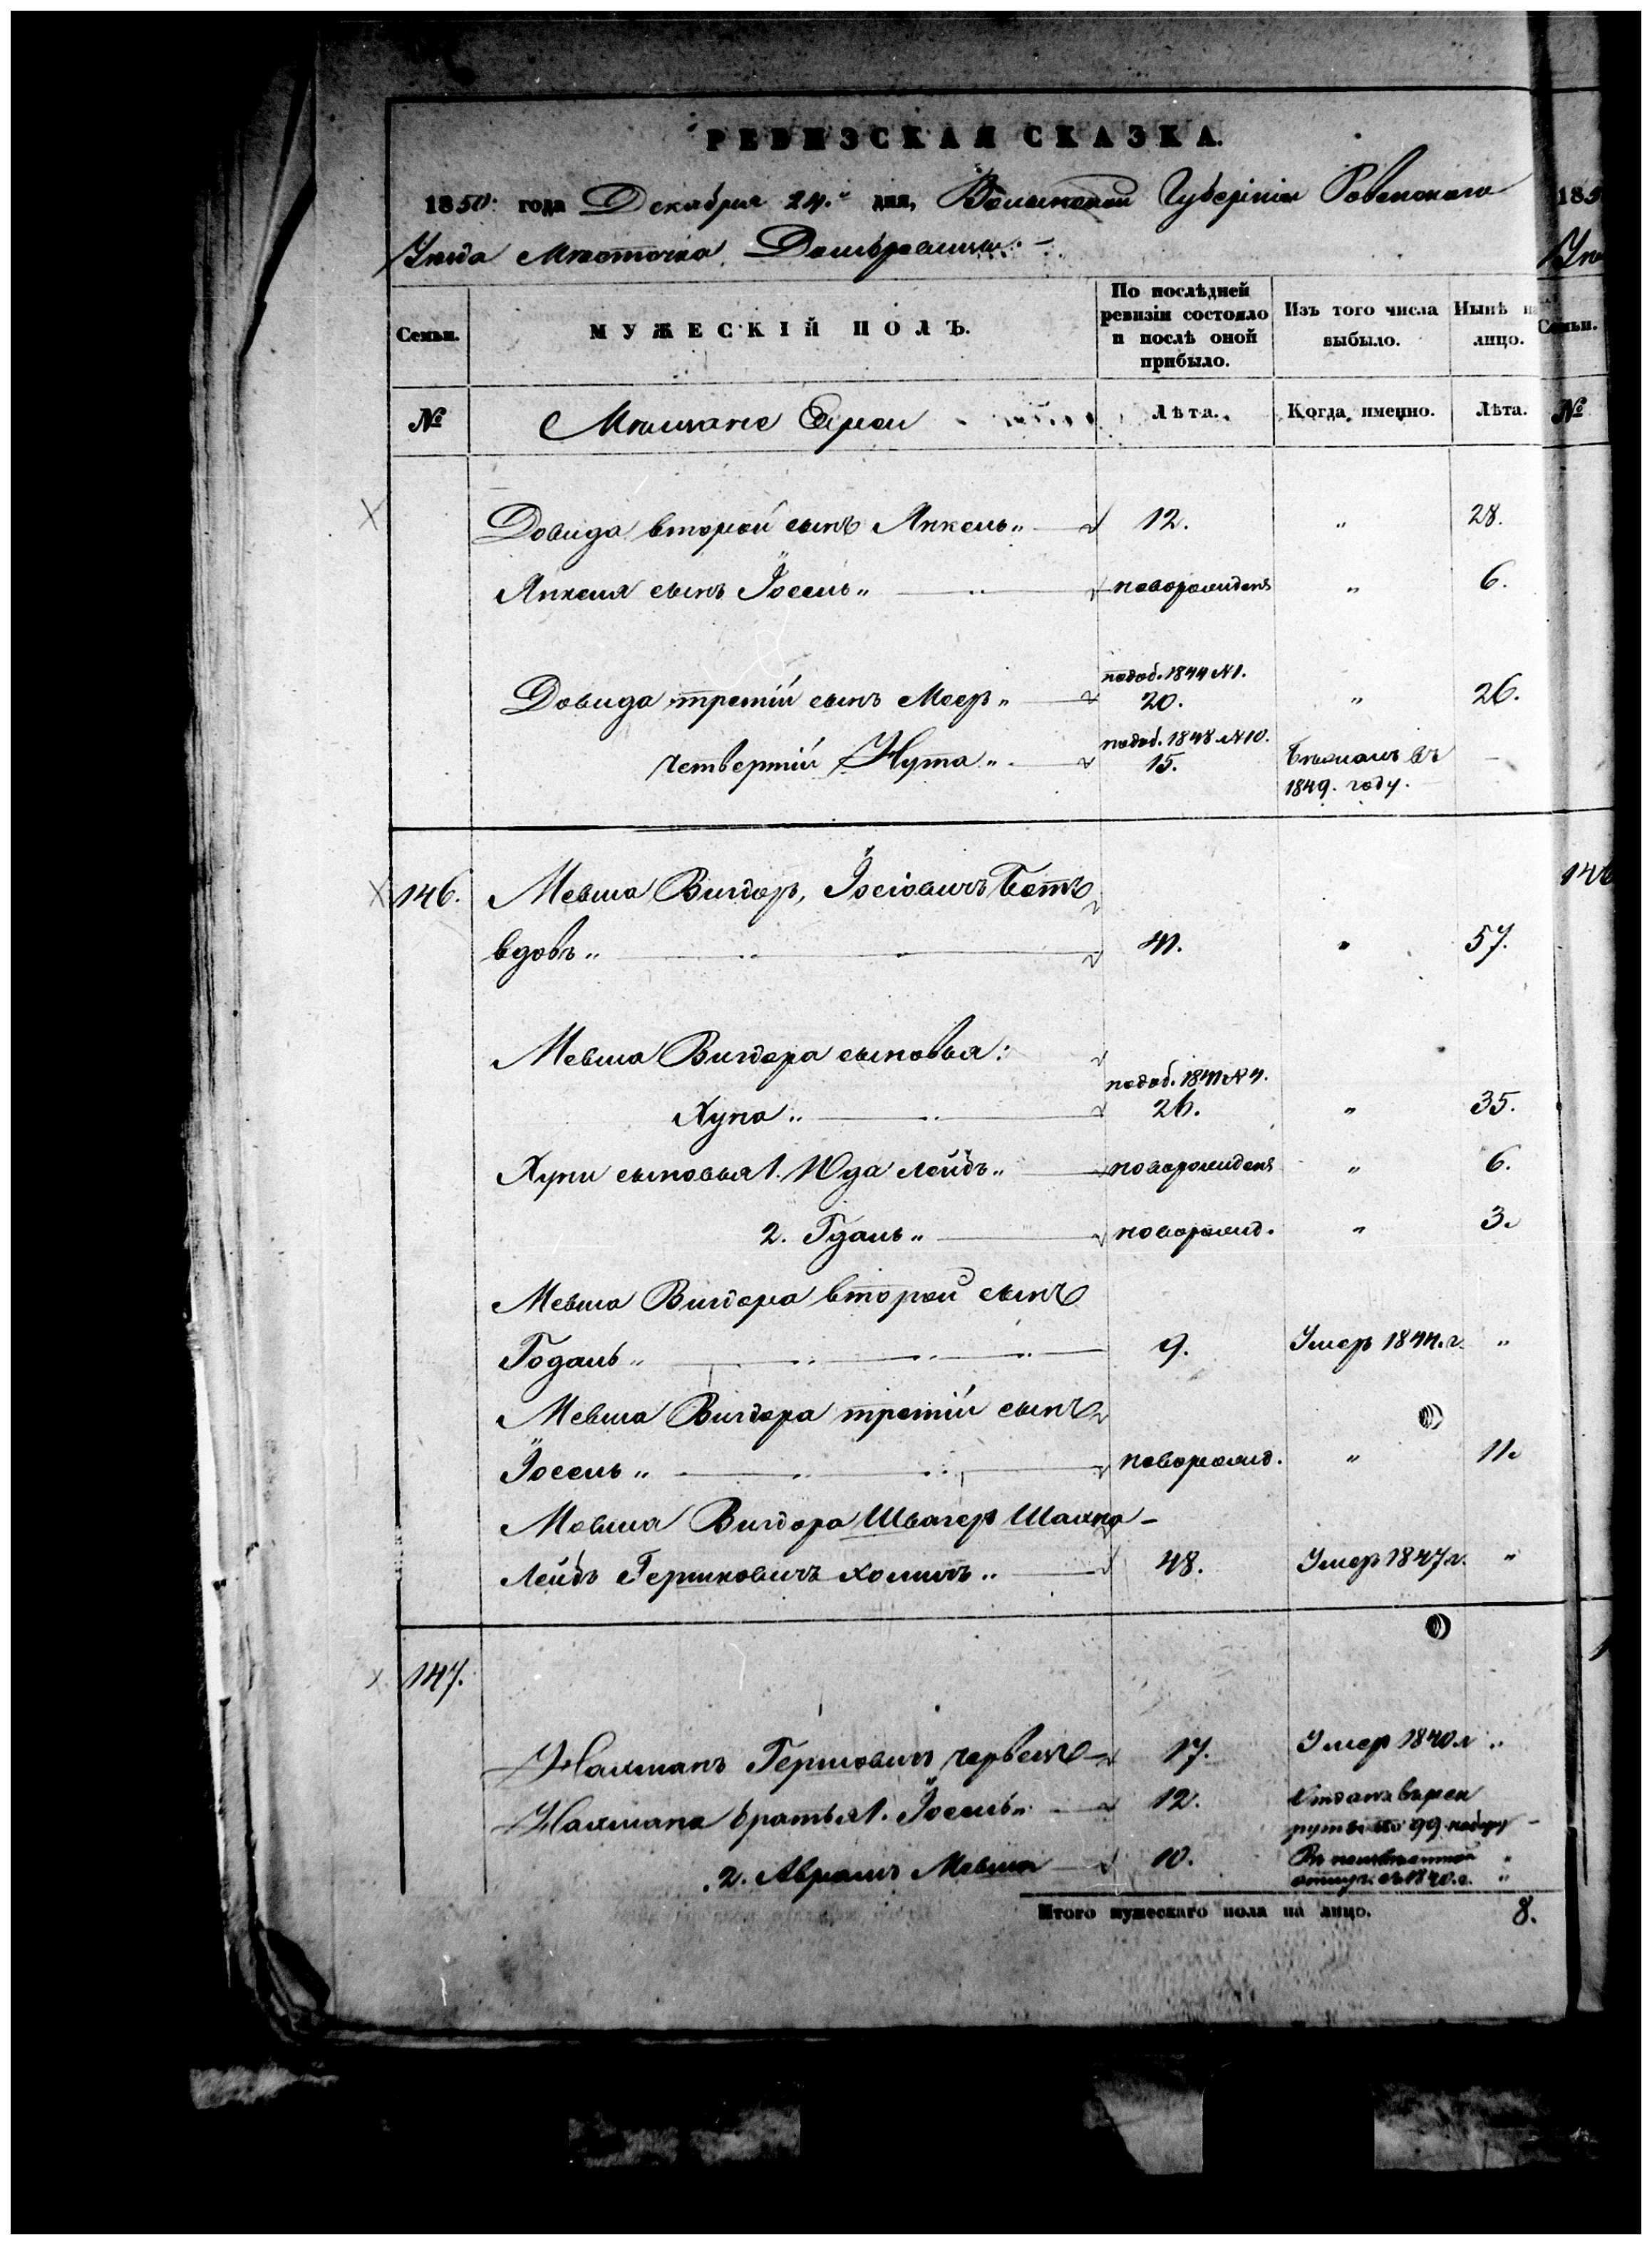 РЕВИЗСКАЯ СКАЗКА.
1850: года Декабря 24.го дня, Волынской Губерніи Ровенскаго
Уезда Местечка Домбровицы
185
Семьи.
МУЖЕСКІЙ ПОЛЪ.
По послѣдней ревизіи состояло и послѣ оной прибыло.
Изъ того числа выбыло.
Нынѣ на лицо.
№
Мещане Евреи
Лѣта.
Когда именно.
Лѣта.
№
Довида второй сынъ Янкель „ 12. „ 28.
Янкеля сынъ Іосель „ новорожденъ „ 6.
1844 №1.
Довида третій сынъ Меер „ 20. „ 26.
1848 №10.
четвертій Нута „ 15. въ
1849. году.
146. Мевша Вигдор, Іосіовичъ
вдовъ „ 41. „ 57.
Мевша Вигдора сыновья:
1841 №4.
Хуна „ 26. „ 35.
Хуни сыновья 1. Юда Лейбъ „ новорожденъ „ 6.
2. Гдаль „ новорожд. „ 3.
Мевша Вигдора второй сынъ
Годаль „ 9. Умер 1844.г. „
Мевша Вигдора третій сынъ
Іосель „ новорожд. „ 11.
Мовша Вигдора Швагер Шахна
Лейбъ Гершковичъ „ 48. Умер 1847 г. „
147.
Нахманъ Гершовичъ 17. Умер 1840 г. „
Нахмана братья 1. Іосель „ 12. Отданъ въ рек
руты
2. Абрамъ Мевша 10. въ 1840.г. „
Итого мужескаго пола на лицо. 8.